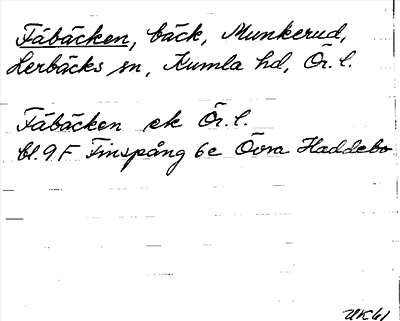 Fäbäcken, bäck, Munkerud,
Lerbäcks sn, Kumla hd, Ör. l.
Fäbäcken ek Ör. l.
bl. 9 F Finspång 6e Övra Haddebo
UK61